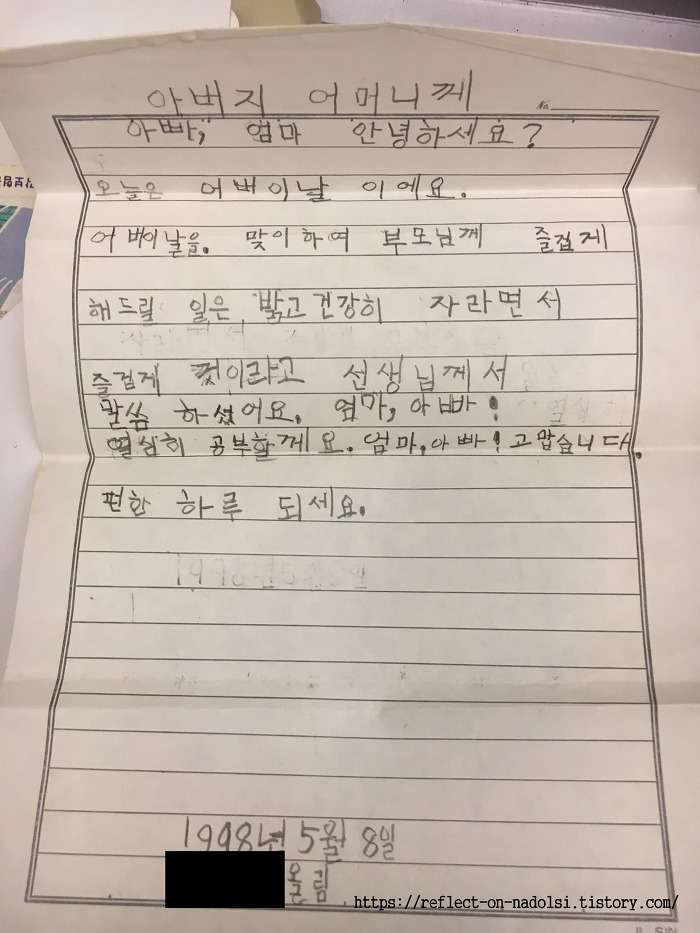 아버지 어머니께
No.
아빠, 엄마 안녕하세요?
오늘은 어버이날 이에요.
어버이날을. 맞이하여 부모님께 즐겁게
해드릴 일은 밝고 건강히 자라면서
즐겁게 것이라고 선생님께서
말씀 하셨어요. 엄마, 아빠!
열심히 공부할께요. 엄마, 아빠! 고맙습니다.
편한 하루 되세요.
1998년 5월 8일
올림
https://reflect-on-nadolsi.tistory.com/